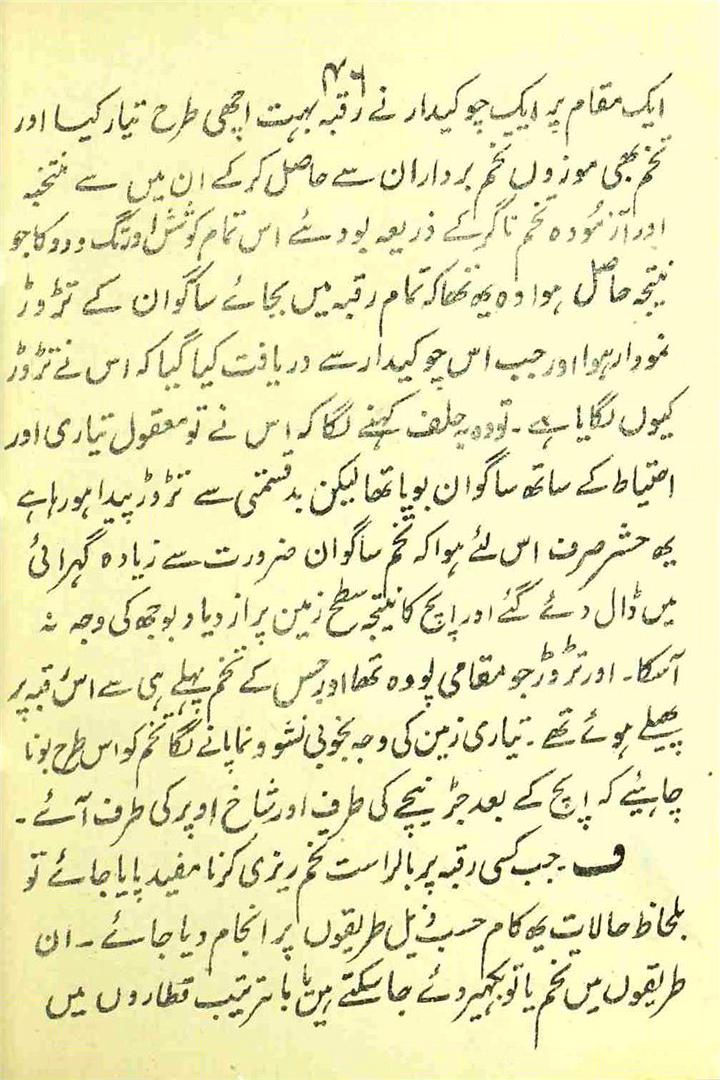 ۴۶
ایک مقام پر ایک چوکیدار نے رقبہ بہت اچھی طرح تیار کیا اور
تخم بھی موزوں تخم برداران سے حاصل کرکے ان میں سے منتخبہ
اور آزمودہ تخم ناگر کے ذریعہ بودئے اس تمام کوشش اور تگ و دو کا جو
نتیجہ حاصل ہوا وہ یہ تھا کہ تمام رقبہ میں بجائے ساگوان کے تڑوڑ
نمودار ہوا اور جب اس چوکیدار سے دریافت کیا گیا کہ اس نے تڑوڑ
کیوں لگایا ہے ۔ تو وہ بہ حلف کہنے لگا کہ اس نے تو معقول تیاری اور
احتیاط کے ساتھ ساگوان بویا تھا لیکن بد قسمتی سے تڑوڑ پیدا ہو رہا ہے
یہ حشر صرف اس لئے ہوا کہ تخم ساگوان ضرورت سے زیادہ گہرائی
میں ڈال دئے گئے اور اپچ کا نتیجہ سطح زمین پر از دیاد بوجھ کی وجہ نہ
آسکا ۔ اور تڑوڑ جو مقامی پودہ تھا اور جس کے تخم پہلے ہی سے اس رقبہ پر
پھیلے ہوئے تھے ۔ تیاری زمین کی وجہ بخوبی نشو و نما پانے لگا تخم کو اس طرح بونا
چاہئیے کہ اپچ کے بعد جڑ نیچے کی طرف اور شاخ اوپر کی طرف آئے ۔
ف ۔ جب کسی رقبہ پر بالراست تخم ریزی کرنا مفید پایا جائے تو
بلحاظ حالات یہ کام حسب ذیل طریقوں پر انجام دیا جائے ۔ ان
طریقوں میں تخم یا تو بکھیر دئے جا سکتے ہیں یا با ترتیب قطاروں میں